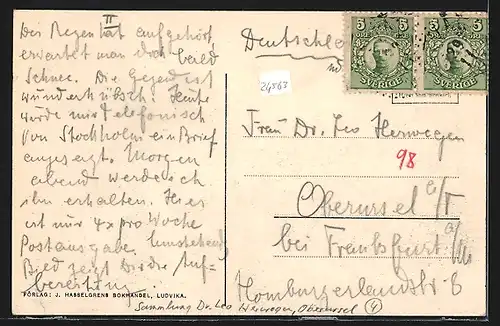 II
Der Regen hat aufgehört
erwartet man doch bald
Schnee. Die Gegend ist
wunderhübsch. Heute
wurde mir telefonisch
von Stockholm ein Brief
angesagt. Morgen
abend werde ich
ihn erhalten. Hier
ist nur 4x pro Woche
Postausgabe. Umstehend
Bild zeigt Dir die Auf-
bereitung
FÖRLAG: J. HASSELGRENS BOKHANDEL, LUDVIKA.
Deutschland
5 5
SVERIGE
5 5
SVERIGE
24563
Frau Dr. Leo Herwegen
98
Oberursel a/T
bei Frankfurt a/M
Homburgerlandstr. 8
Sammlung Dr. Leo Herwegen, Oberursel 4